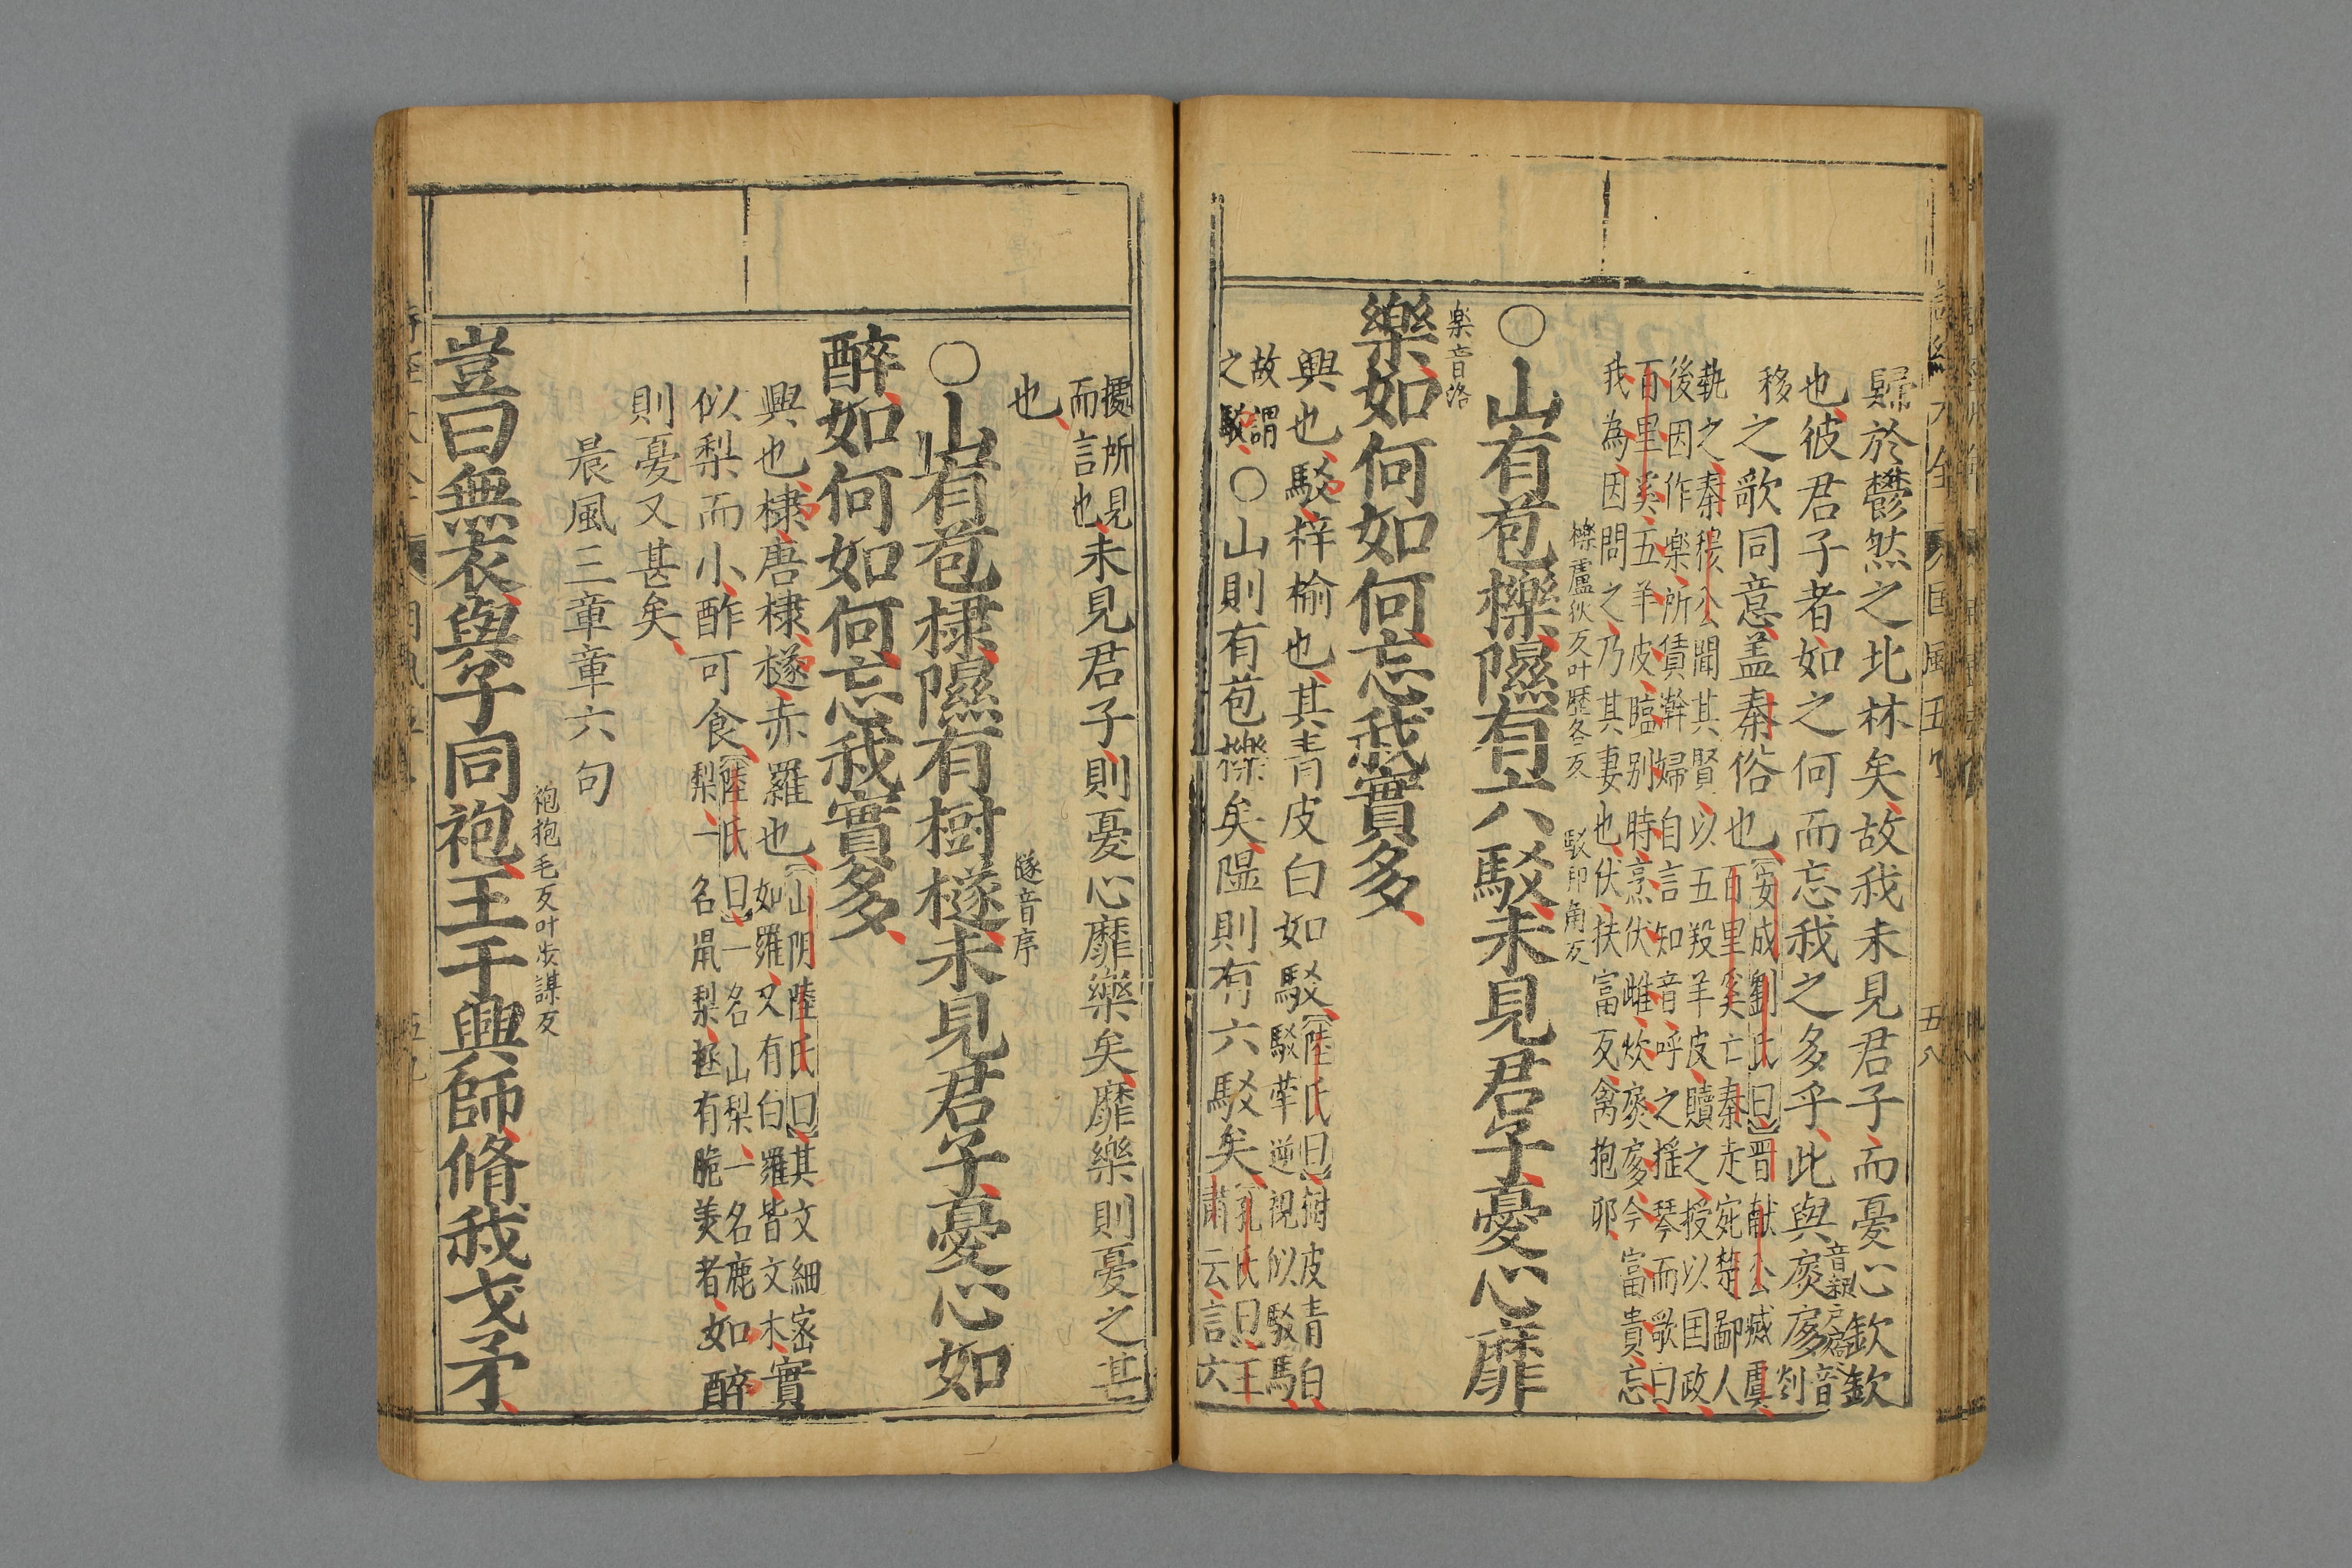 歸於鬱然之北林矣故我未見君子而憂心欽欽
也彼君子者如之何而忘我之多乎此與扊扅
音剡
音移
之歌同意盖秦俗也
安成劉氏曰晋献公滅虞
百里奚亡秦走宛楚鄙人
執之秦穆公聞其賢以五羖羊皮贖之授以国政
後因作楽所賃澣婦自言知音呼之援琴而歌曰
百里奚五羊皮臨别時烹伏雌炊扊扅今富貴忘
我為因問之乃其妻也伏扶富反禽抱卵
櫟盧狄反叶歴各反
駁邦角反
○山有苞櫟隰有六駁未見君子憂心靡
楽音洛
樂如何如何忘我實多
興也駁梓榆也其青皮白如駁
陸氏曰樹皮青白
駁犖遥視似駁馬
故謂
之駁
○山則有苞櫟矣隰則有六駁矣
孔氏曰王
肅云言六
據所見
而言也
未見君子則憂心靡樂矣靡樂則憂之甚
也
檖音序
○山有苞棣隰有樹檖未見君子憂心如
醉如何如何忘我實多
興也棣唐棣檖赤羅也
山陰陸氏曰其文細密
如羅又有白羅皆文木
實
似梨而小酢可食
陸氏曰一名山梨一名鹿
梨一名鼠梨極有脆美者
如醉
則憂又甚矣
晨風三章章六句
袍抱毛反叶步謀反
豈曰無衣與子同袍王于興師脩我戈矛